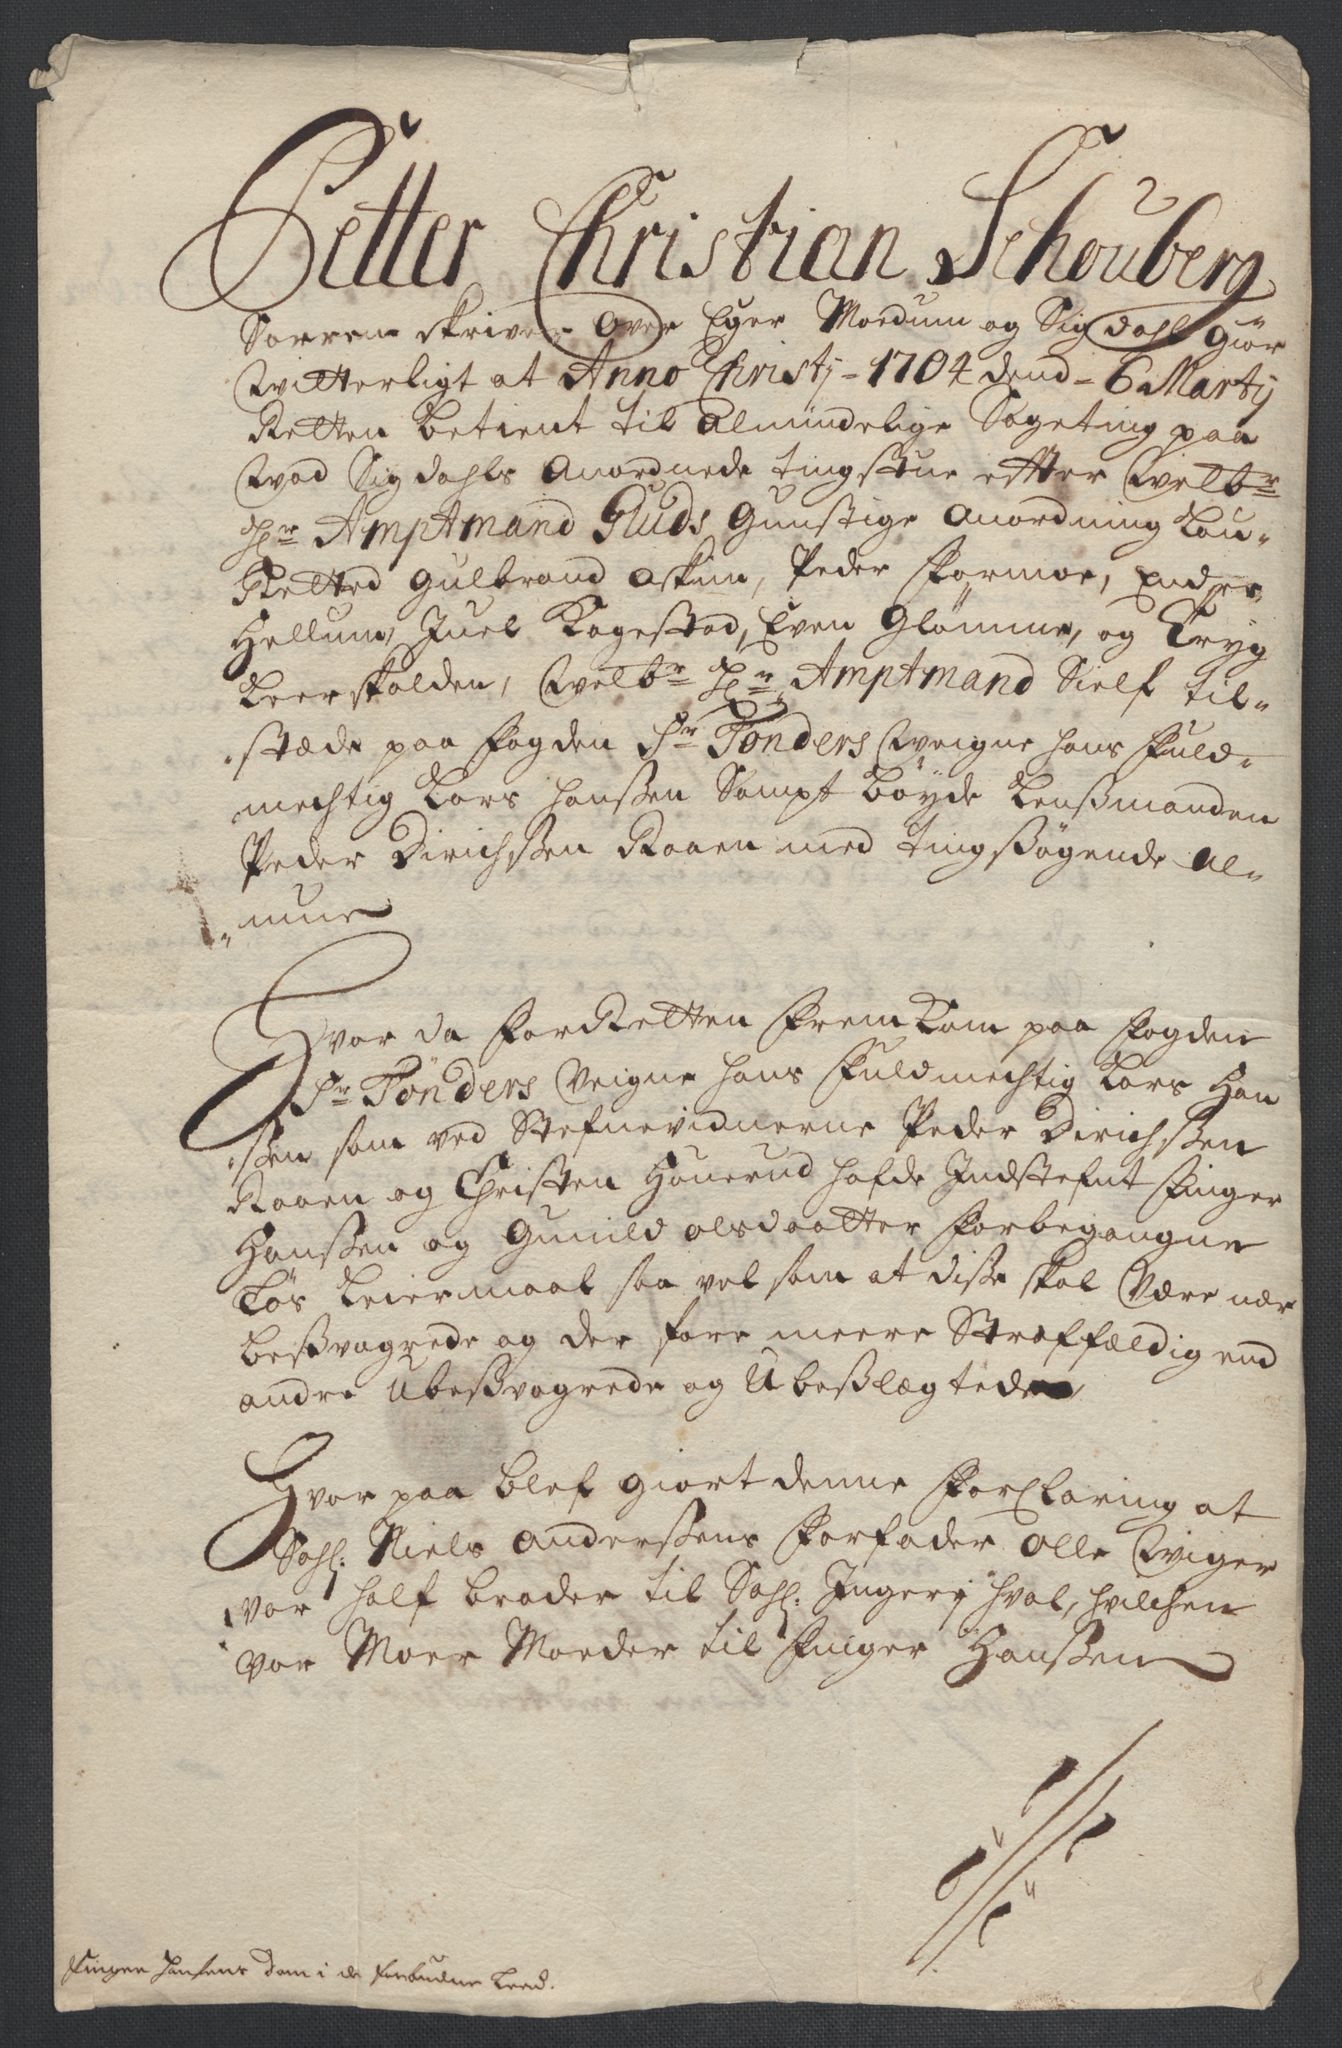 Petter Christian Schouberg
Sorrenskriver Over Eger Moedum og Sigdahl Giør
Witterligt at Anno Christj - 1704 dend - 6 Martij
Retten betient til Almindelige Sageting paa
Wad Sigdahls Anordnede tingstue efter Welbr
Hr AmptMand Gluds Gunstige Anordning Lau-
Retted Gulbrand Askim, Peder Formoe, Endrer
Hellum, Juel Kogestad, Even Glømme, og Tryg
Leerskalden, Welbr Hr AmptMand Sielf til-
stæde paa fogden Sr Tønders Weigne hans fuld-
mechtig Lars Hanssen Sampt bøyde Lensmanden
Peder Dirichssen Raaen med tingssøgende Al-
-mue
Hvor da for Retten fremkom paa fogden
Sr Tønders Veigne hans fuldmechtig Lars Han
ssen som ved Stefnevidnerne Peder Dirichssen
Raaen og Christen Houerud hafde Indstefnt Finger
Hanssen og Gunild olsdaatter forbegangne
Løs Leiermaal saa vel som at disse skal Være nær
besvogrede og der fore meere Straffældig end
andre Ubesvogrede og Ubeslægtede
Hvor paa blef giort denne forClaring at
Sahl: Niels Anderssens forfader Olle Wiger
var half broder til Sahl: Ingerj Hval, hvilchen
var Moer Moeder til Finger Hanssen
Finger Hansens Dom i de forbudne Leed.